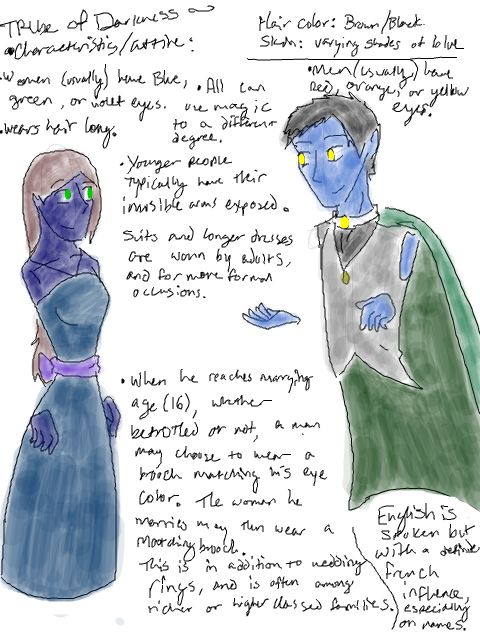 Tribe of Darkness ~
•Characteristics/attire:
Hair color: Brown/Black.
Skin: varying shades of blue
•Women (usually) have Blue,
green, or violet eyes.
•wears hair long.
•All can
use magic
to a different
degree.
•Men (usually) have
red, orange, or yellow
eyes.
•Younger people
typically have their
invisible arms exposed.
Suits and longer dresses
are worn by adults,
and for more formal
occusions.
•When he reaches marrying
age (16), whether
betrothed or not, a man
may choose to wear a
brooch matching his eye
color. The woman he
marries may then wear a
matching brooch.
This is in addition to wedding
rings, and is often among
richer or higher classed families.
English is
spoken but
with a definite
french
influence,
especially
on names.